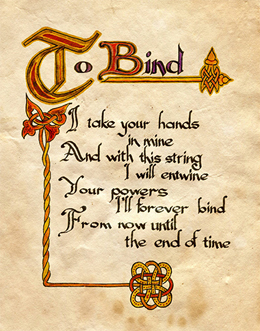 To Bind
I take your hands
in mine
And with this string
I will entwine
Your powers
I'll forever bind
From now until
the end of time